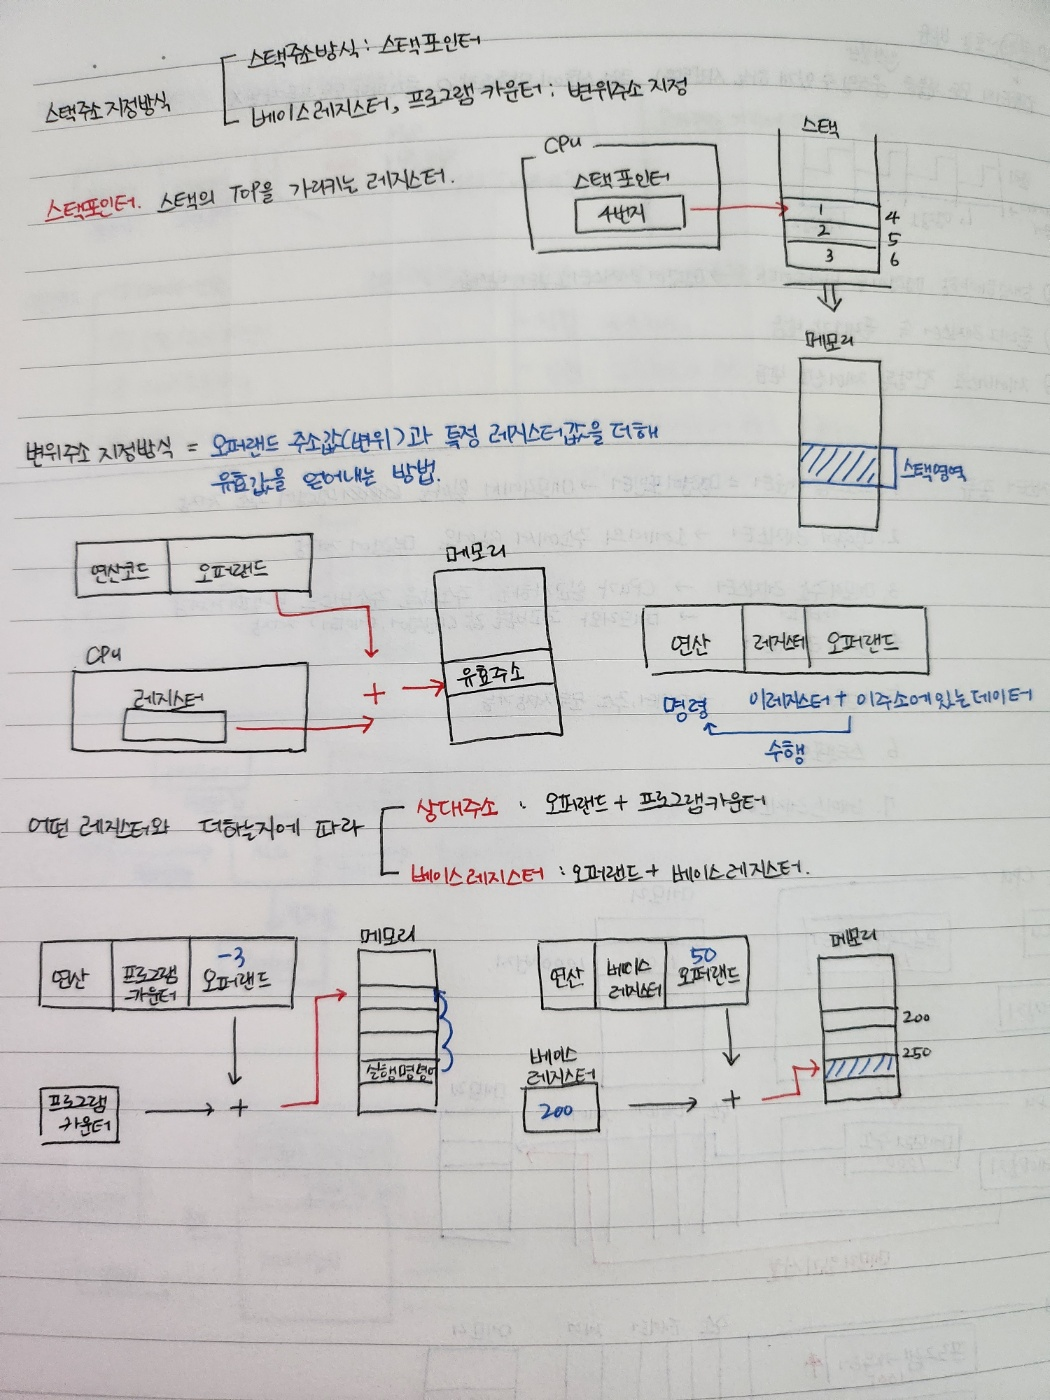 스택주소 지정방식
스택주소방식 : 스택포인터
베이스레지스터, 프로그램 카운터 : 변위주소 지정
스택포인터. 스택의 TOP을 가리키는 레지스터.
CPU
스택포인터
4번지
스택
1 4
2 5
3 6
메모리
스택영역
변위주소 지정방식 = 오퍼랜드 주소값(변위)과 특정 레지스터값을 더해
유효값을 얻어내는 방법.
연산코드 오퍼랜드
CPU
레지스터
+
메모리
유효주소
연산 레지스터 오퍼랜드
명령 이레지스터 + 이주소에있는데이터
수행
어떤 레지스터와 더하는지에 따라
상대주소 : 오퍼랜드 + 프로그램카운터
베이스레지스터 : 오퍼랜드 + 베이스레지스터.
연산 프로그램
카운터
-3
오퍼랜드
프로그램
카운터
+
메모리
실행명령어
연산 베이스
레지스터
50
오퍼랜드
베이스
레지스터
200
+
메모리
200
250